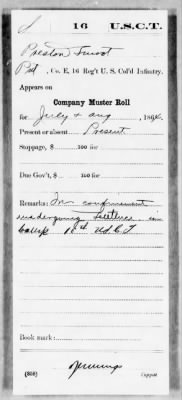 S 16 U.S.C.T.
Preston Smoot
Pvt, Co. E, 16 Reg't U. S. Col'd Infantry.
Appears on
Company Muster Roll
for July & Aug, 1864.
Present or absent Present
Stoppage, $ 100 for
Due Gov't, $ 100 for
Remarks: In confinement
undergoing sentence in
camp 16th U.S.C.T
Book mark:
Jennings
(858) Copyist.